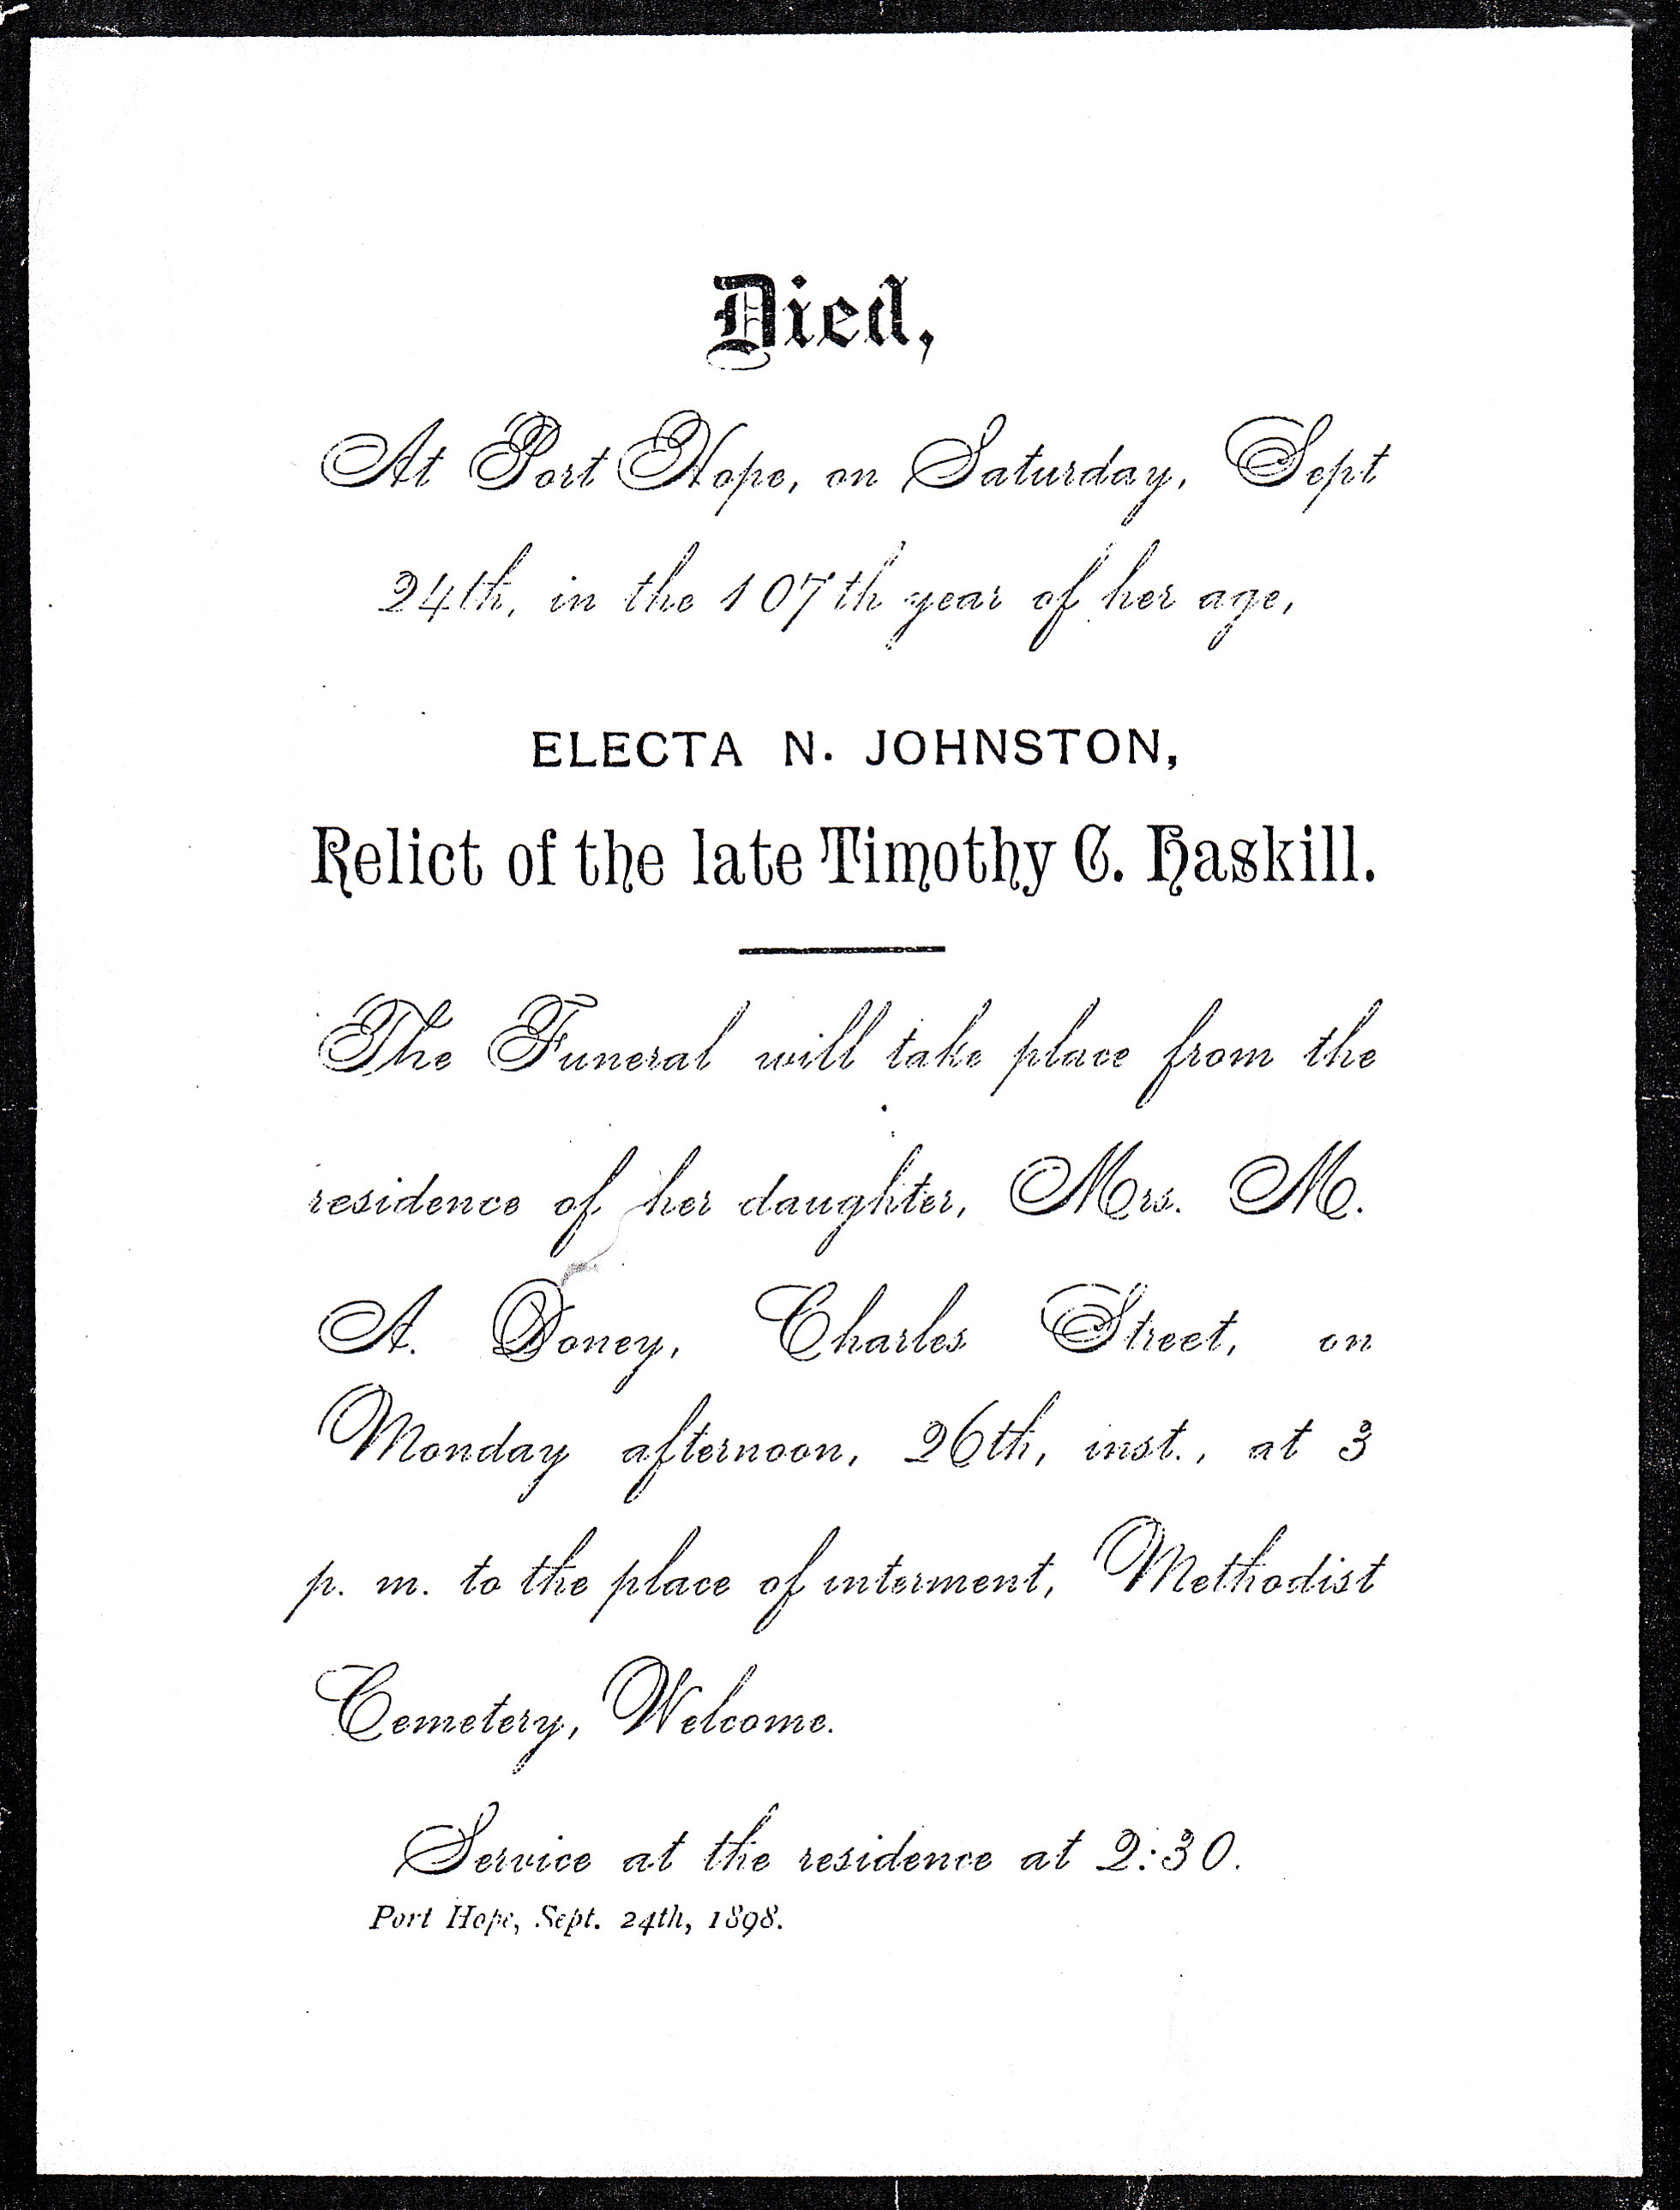 Died,
At Port Hope, on Saturday, Sept
24th, in the 107th year of her age,
ELECTA N. JOHNSTON,
Relict of the late Timothy C. Haskill.
The Funeral will take place from the
residence of her daughter, Mrs. M.
A. Doney, Charles Street, on
Monday afternoon, 26th, inst., at 3
p. m. to the place of interment, Methodist
Cemetery, Welcome.
Service at the residence at 2:30.
Port Hope, Sept. 24th, 1898.